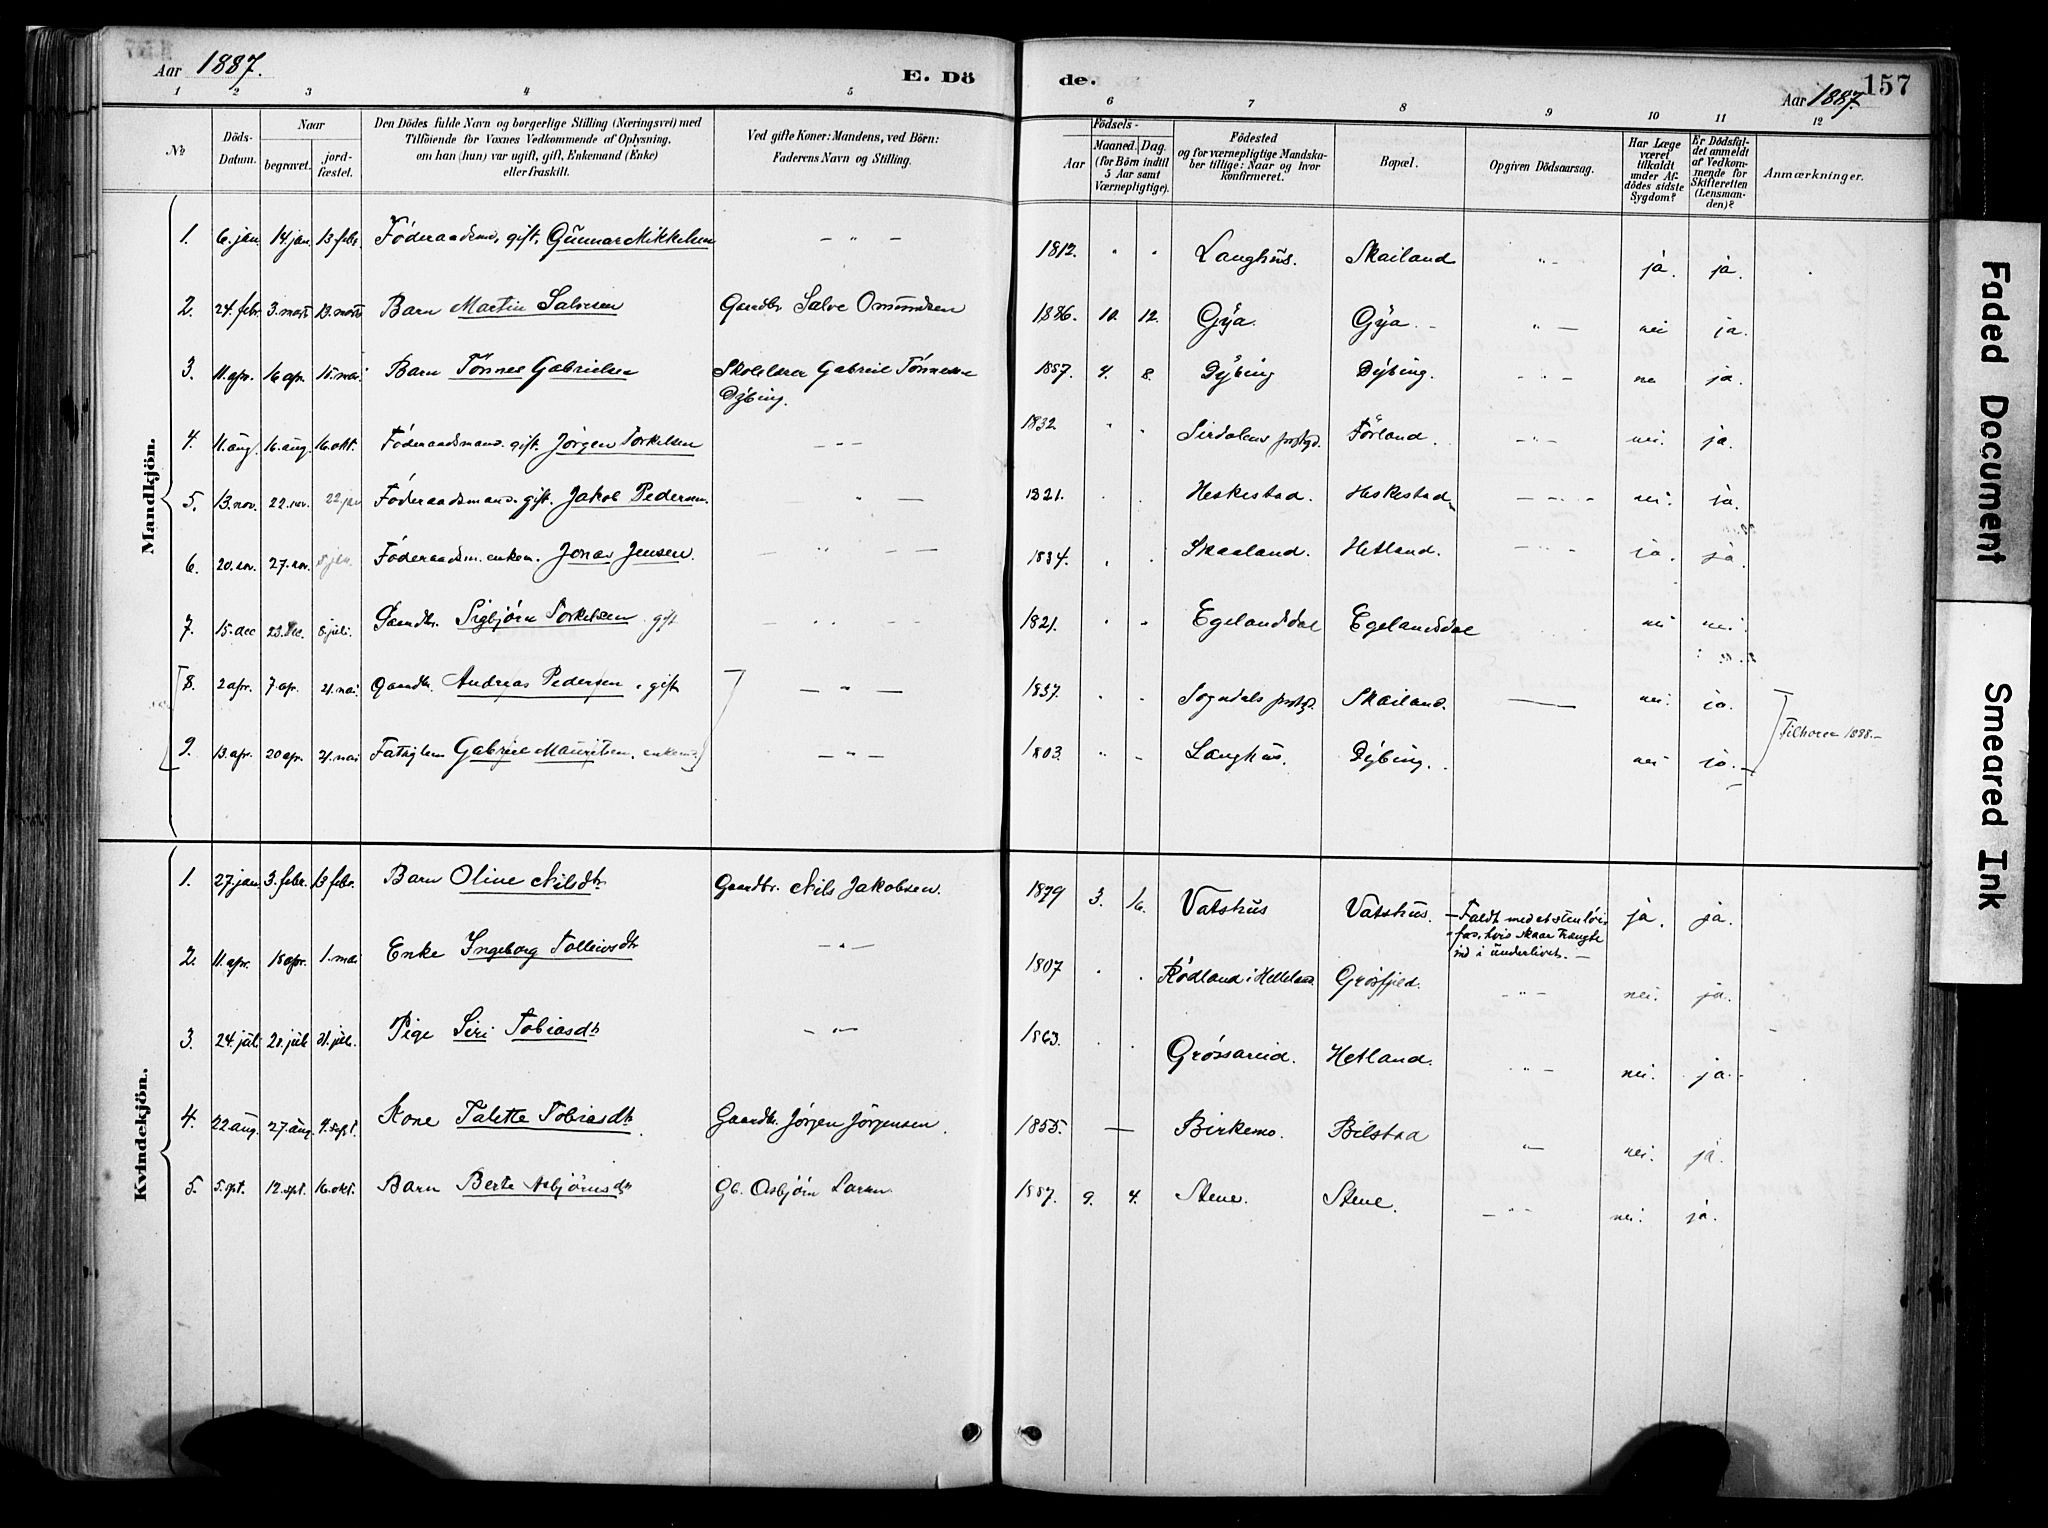 Aar 1887.
E. Dö
de.
Aar 1887.
157
1 2 3 4 5 6 7 8 9 10 11 12
No
Döds-Datum.
Naar
begravet.
jord-fæstet.
Den Dödes fulde Navn og borgerlige Stilling (Næringsvei) med
Tilföiende for Voxnes Vedkommende af Oplysning,
om han (hun) var ugift, gift, Enkemand (Enke)
eller fraskilt.
Ved gifte Koner: Mandens, ved Börn:
Faderens Navn og Stilling.
Födsels-
Aar
Maaned. Dag.
(for Börn indtil
5 Aar samt
Værnepligtige).
Födested
og for værnepligtige Mandska-
ber tillige: Naar og hvor
konfirmeret.
Bopæl.
Opgiven Dödsaarsag.
Har Læge
været
tilkaldt
under Af-
dödes sidste
Sygdom?
Er Dödsfal-
det anmeldt
af Vedkom-
mende for
Skifteretten
(Lensman-
den)?
Anmærkninger.
Mandkjön.
1. 6. jan. 14. jan. 13. febr. Föderaadsm, gift, Gunnar Mikkelsen – " – 1812. " " Langhus. Skailand " – ja. ja.
2. 24. febr. 3. marts 13. marts Barn Martin Salvesen Gaardbr. Salve Omundsen 1886. 10. 12. Gya. Gya. " – nei ja.
3. 11. apr. 16 apr. 15. mai. Barn Tønnes Gabrielsen Skolelærer Gabriel Tønnesen
Dybing. 1887. 4. 8. Dybing Dybing. – " – ja.
4. 11. aug. 16. aug. 16. okt. Föderaadsmand. gift. Jørgen Torkelsen – " – 1832. " " Sirdalens prstgd. Førland. – " – nei. ja.
5. 13. nov. 22. nov. 22. jan Föderaadsmand. gift. Jakob Pedersen. " – 1821. Heskestad. Heskestad – " – nei. ja.
6. 20. nov. 27. nov. Föderaadsm. enkem. Jonas Jensen. – " – 1834. Skaaland. Hetland. – " – ja. ja.
7. 15. dec 23. dec. 8. juli. Gaardbr. Sigbjørn Torkelsen gift – " – 1821. " Egelandsdal Egelandsdal nei nei.
8. 2 apr. 7. apr. 21. mai Gaardbr. Andreas Pedersen, gift – " – 1837. Sogndals prstgd. Skailand. — nei. ja.
9. 13. apr. 20 apr. 21. mai Fattiglem Gabriel Mauritsen. enkem. – " – 1803. " – Langhus. Dybing. nei ja. –
Tilhører 1888. –
Kvindekjön.
1. 27. jan. 3. febr. 13 febr. Barn Oline Nilsdtr Gaardbr. Nils Jakobsen. 1879 3. 16. Vatshus Vatshus. – Faldt med et
hvis skaar trængte
ind i underlivet. – ja. ja.
2. 11. apr. 18 apr. 1. mai Enke Ingeborg Tolleivsdtr – " – 1807 Rødland i Helleland Grøsfjeld. – " – nei. ja.
3. 24. juli 28. juli 31. juli. Pige Siri Tobiasdtr – " – 1863. Grøssareid. Hetland. " – nei. ja.
4. 22 aug. 27. aug. 4. sept. Kone Talette Tobiasdtr. Gaardbr. Jørgen Jørgensen. 1855. — Birkemo. Bilstad " nei. ja.
5. 5. spt. 12. spt. 16. okt. Barn Berte Asbjørnsdtr Gb. Asbjørn Larsen 1887. 9. 4. Stene. Stene. – " nei. ja.
Faded Document
Smeared Ink